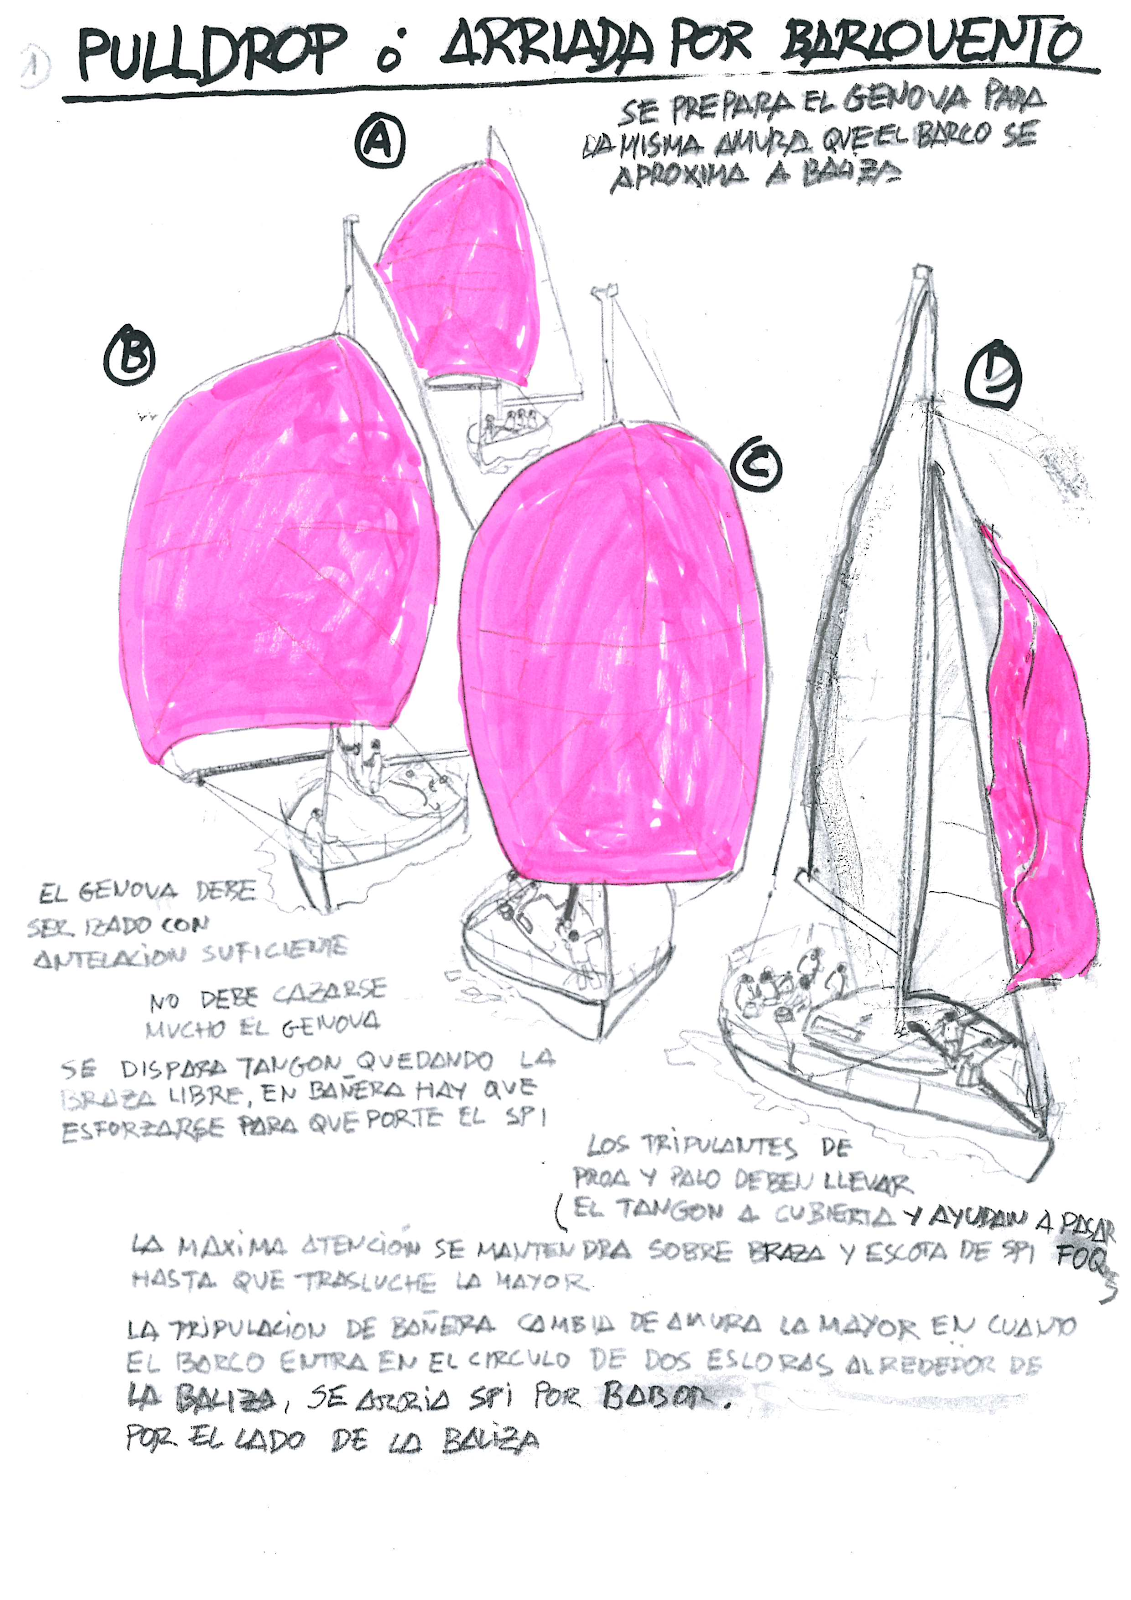 1)
PULLDROP ó ARRIADA POR BARLOVENTO
SE PREPARA EL GENOVA PARA
LA MISMA AMURA QUE EL BARCO SE
APROXIMA A BALIZA
A
B
C
D
EL GENOVA DEBE
SER IZADO CON
ANTELACION SUFICIENTE
NO DEBE CAZARSE
MUCHO EL GENOVA
SE DISPARA TANGON QUEDANDO LA
BRAZA LIBRE, EN BAÑERA HAY QUE
ESFORZARSE PARA QUE PORTE EL SPI
LOS TRIPULANTES DE
PROA Y PALO DEBEN LLEVAR
(EL TANGON A CUBIERTA Y AYUDAN A PASAR
FOQUE
LA MAXIMA ATENCIÓN SE MANTENDRA SOBRE BRAZA Y ESCOTA DE SPI
HASTA QUE TRASLUCHE LA MAYOR
LA TRIPULACION DE BAÑERA CAMBIA DE AMURA LA MAYOR EN CUANTO
EL BARCO ENTRA EN EL CIRCULO DE DOS ESLORAS ALREDEDOR DE
LA BALIZA, SE ARRIA SPI POR BABOR.
POR EL LADO DE LA BALIZA